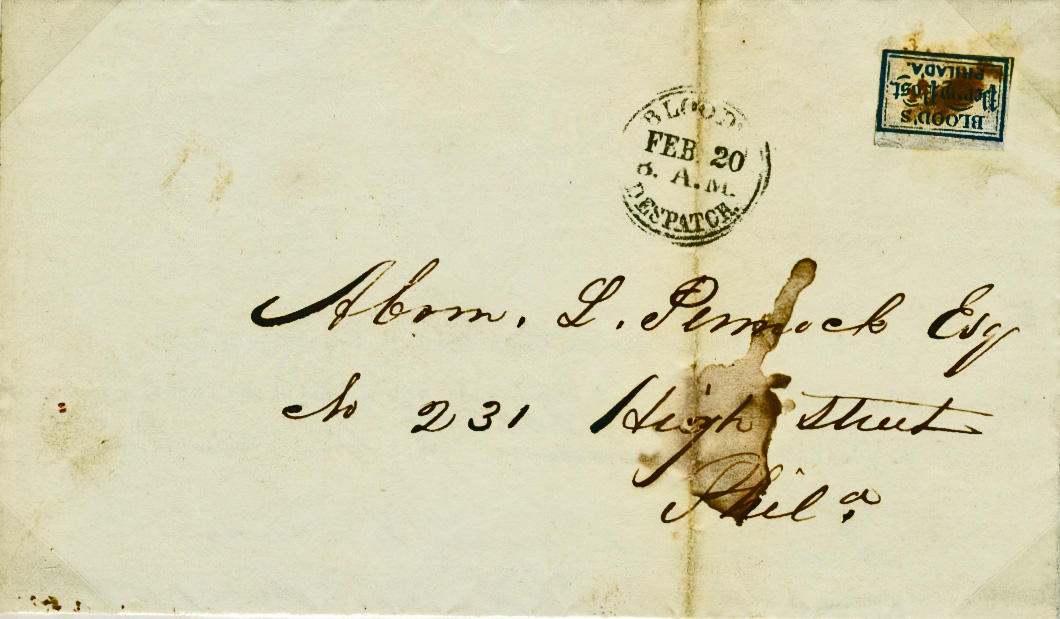 BLOOD'S
FEB 20
8. A.M.
DESPATCH.
BLOOD'S
Penny Post,
PHILADA.
Abrm. L. Pennock Esq
No 231 High Street
Phila.